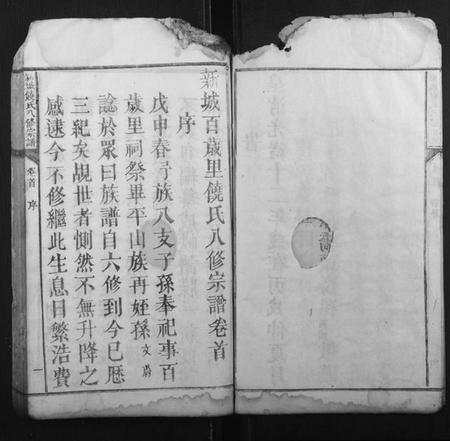 新城百歲里饒氏八修宗譜卷首
序
戊申春予族八支子孫奉祀事百
歲里祠祭畢平山族再姪孫文蔚
諗於眾曰族譜自六修到今已歷
三紀矣覘世者惻然不無升降之
感逮今不修繼此生息日繁浩費
饒氏八修宗譜
卷首 序
一